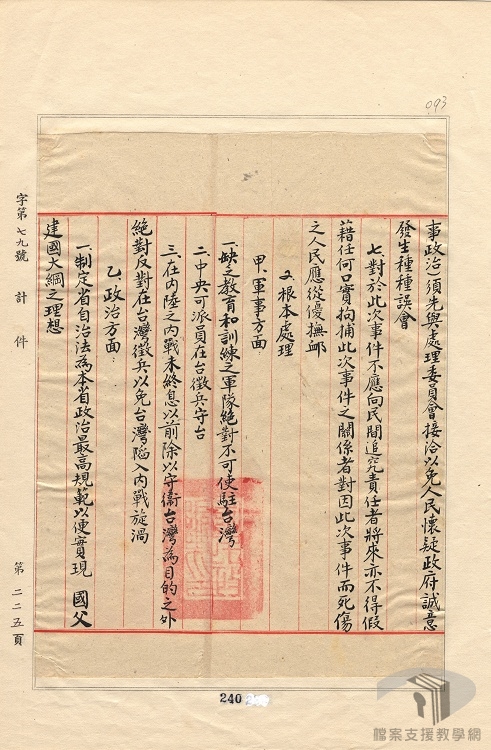 093
事政治)須先與處理委員會接洽以免人民懷疑政府誠意
發生種種誤會
七、對於此次事件不應向民間追究責任者將來亦不得假
藉任何口實拘捕此次事件之關係者對因此次事件而死傷
之人民應從優撫卹
2.根本處理
甲、軍事方面:
一、缺乏教育和訓練之軍隊絕對不可使駐台灣
二、中央可派員在台徵兵守台
三、在內陸之內戰未終息以前除以守衛台灣為目的之外
絕對反對在台灣徵兵以免台灣陷入內戰旋渦
乙、政治方面:
一、制定省自治法為本省政治最高規範以便實現 國父
建國大綱之理想
字第七九號 計 件
第二二五頁
240
檔案支援教學網